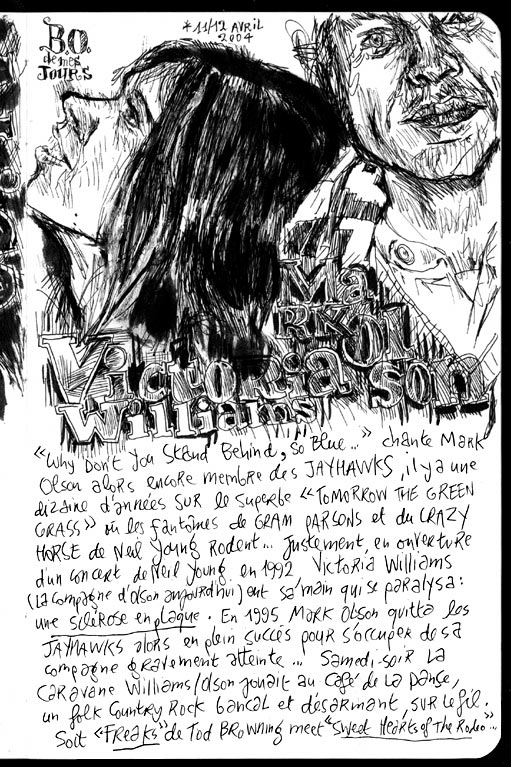 B.O.
de mes
JOURS
*11/12 AVRIL
2004
Victoria
Williams
MaRK Olson
«Why Don't You Stand Behind, so Blue...» chante Mark
Olson alors encore membre des JAYHAWKS, il y a une
dizaine d'années sur le superbe «TOMORROW THE GREEN
GRASS» où les fantômes de GRAM PARSONS et du CRAZY
HORSE de Neil Young Rodent... Justement, en ouverture
d'un concert de Neil Young en 1992 Victoria Williams
(La compagne d'Olson aujourd'hui) eut sa main qui se paralysa:
une sclérose en plaque. En 1995 Mark Olson quitta les
JAYHAWKS alors en plein succès pour s'occuper de sa
compagne gravement atteinte... Samedi-soir La
Caravane Williams/Olson jouait au Café de La Danse,
un folk Country Rock bancal et désarmant, sur le fil.
Soit «Freaks» de Tod Browning meet "Sweet Hearts of The Rodeo"...